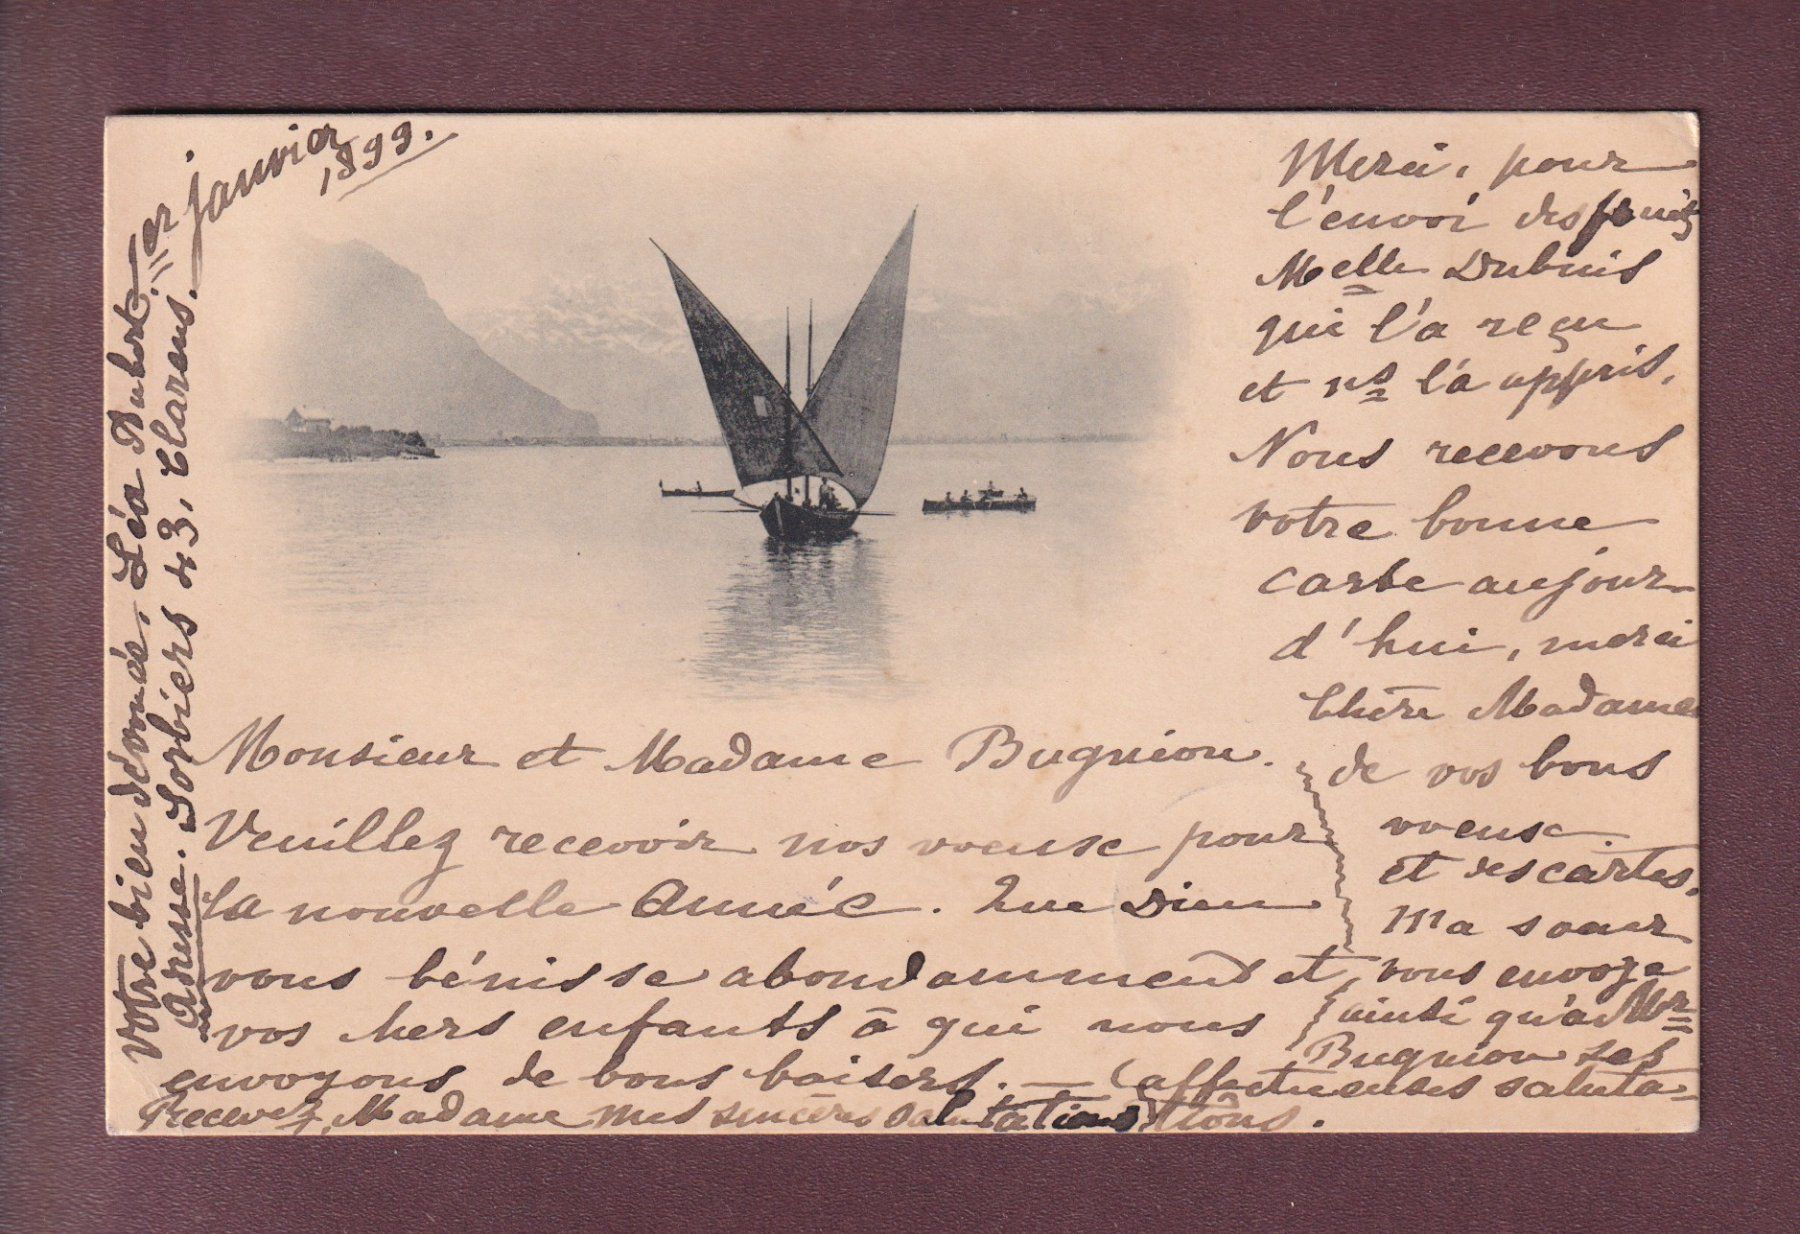 1er janvier
1899.
Monsieur et Madame Bugnion.
Veuillez recevoir nos voeuse pour
la nouvelle Année. Que Dieu
vous bénisse abondamment et
vos chers enfants à qui nous
envoyons de bons baisers. —
Recevez, Madame mes sincères salutations
Merci, pour
l'envoi des
Melle Dubuis
qui l'a reçu
et ns l'a appris.
Nous recevons
votre bonne
carte aujour
d'hui, merci
Chère Madame
de vos bons
voeuse
et des cartes.
Ma soeur
vous envoye
ainsi qu'à Mr
Bugnion ses
affectueuses saluta-
tiôns.
Votre bien dévouée. Léa
Adresse. Sorbiers 43, Clarens.